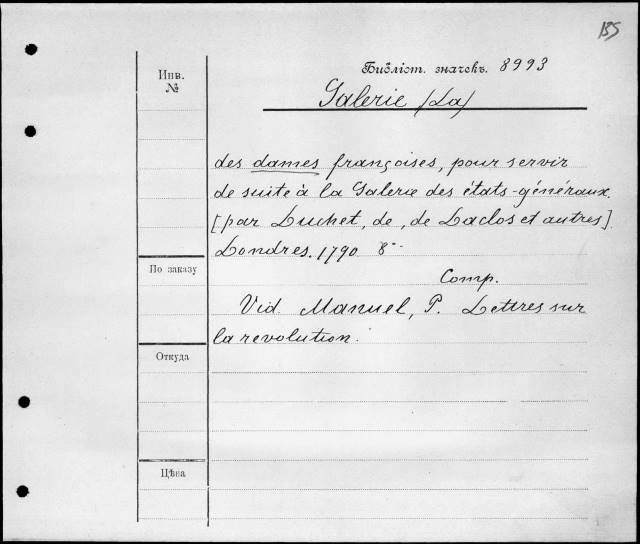 135
Библіот. значекъ. 8993
Инв.
№
Galerie (La)
des dames françoises, pour servir
de suite à la Galerie des états-généraux.
[par Luchet, de, de Laclos et autres].
Londres. 1790 8°
По заказу
Comp.
Vid. Manuel, P. Lettres sur
la revolution.
Откуда
Цѣна